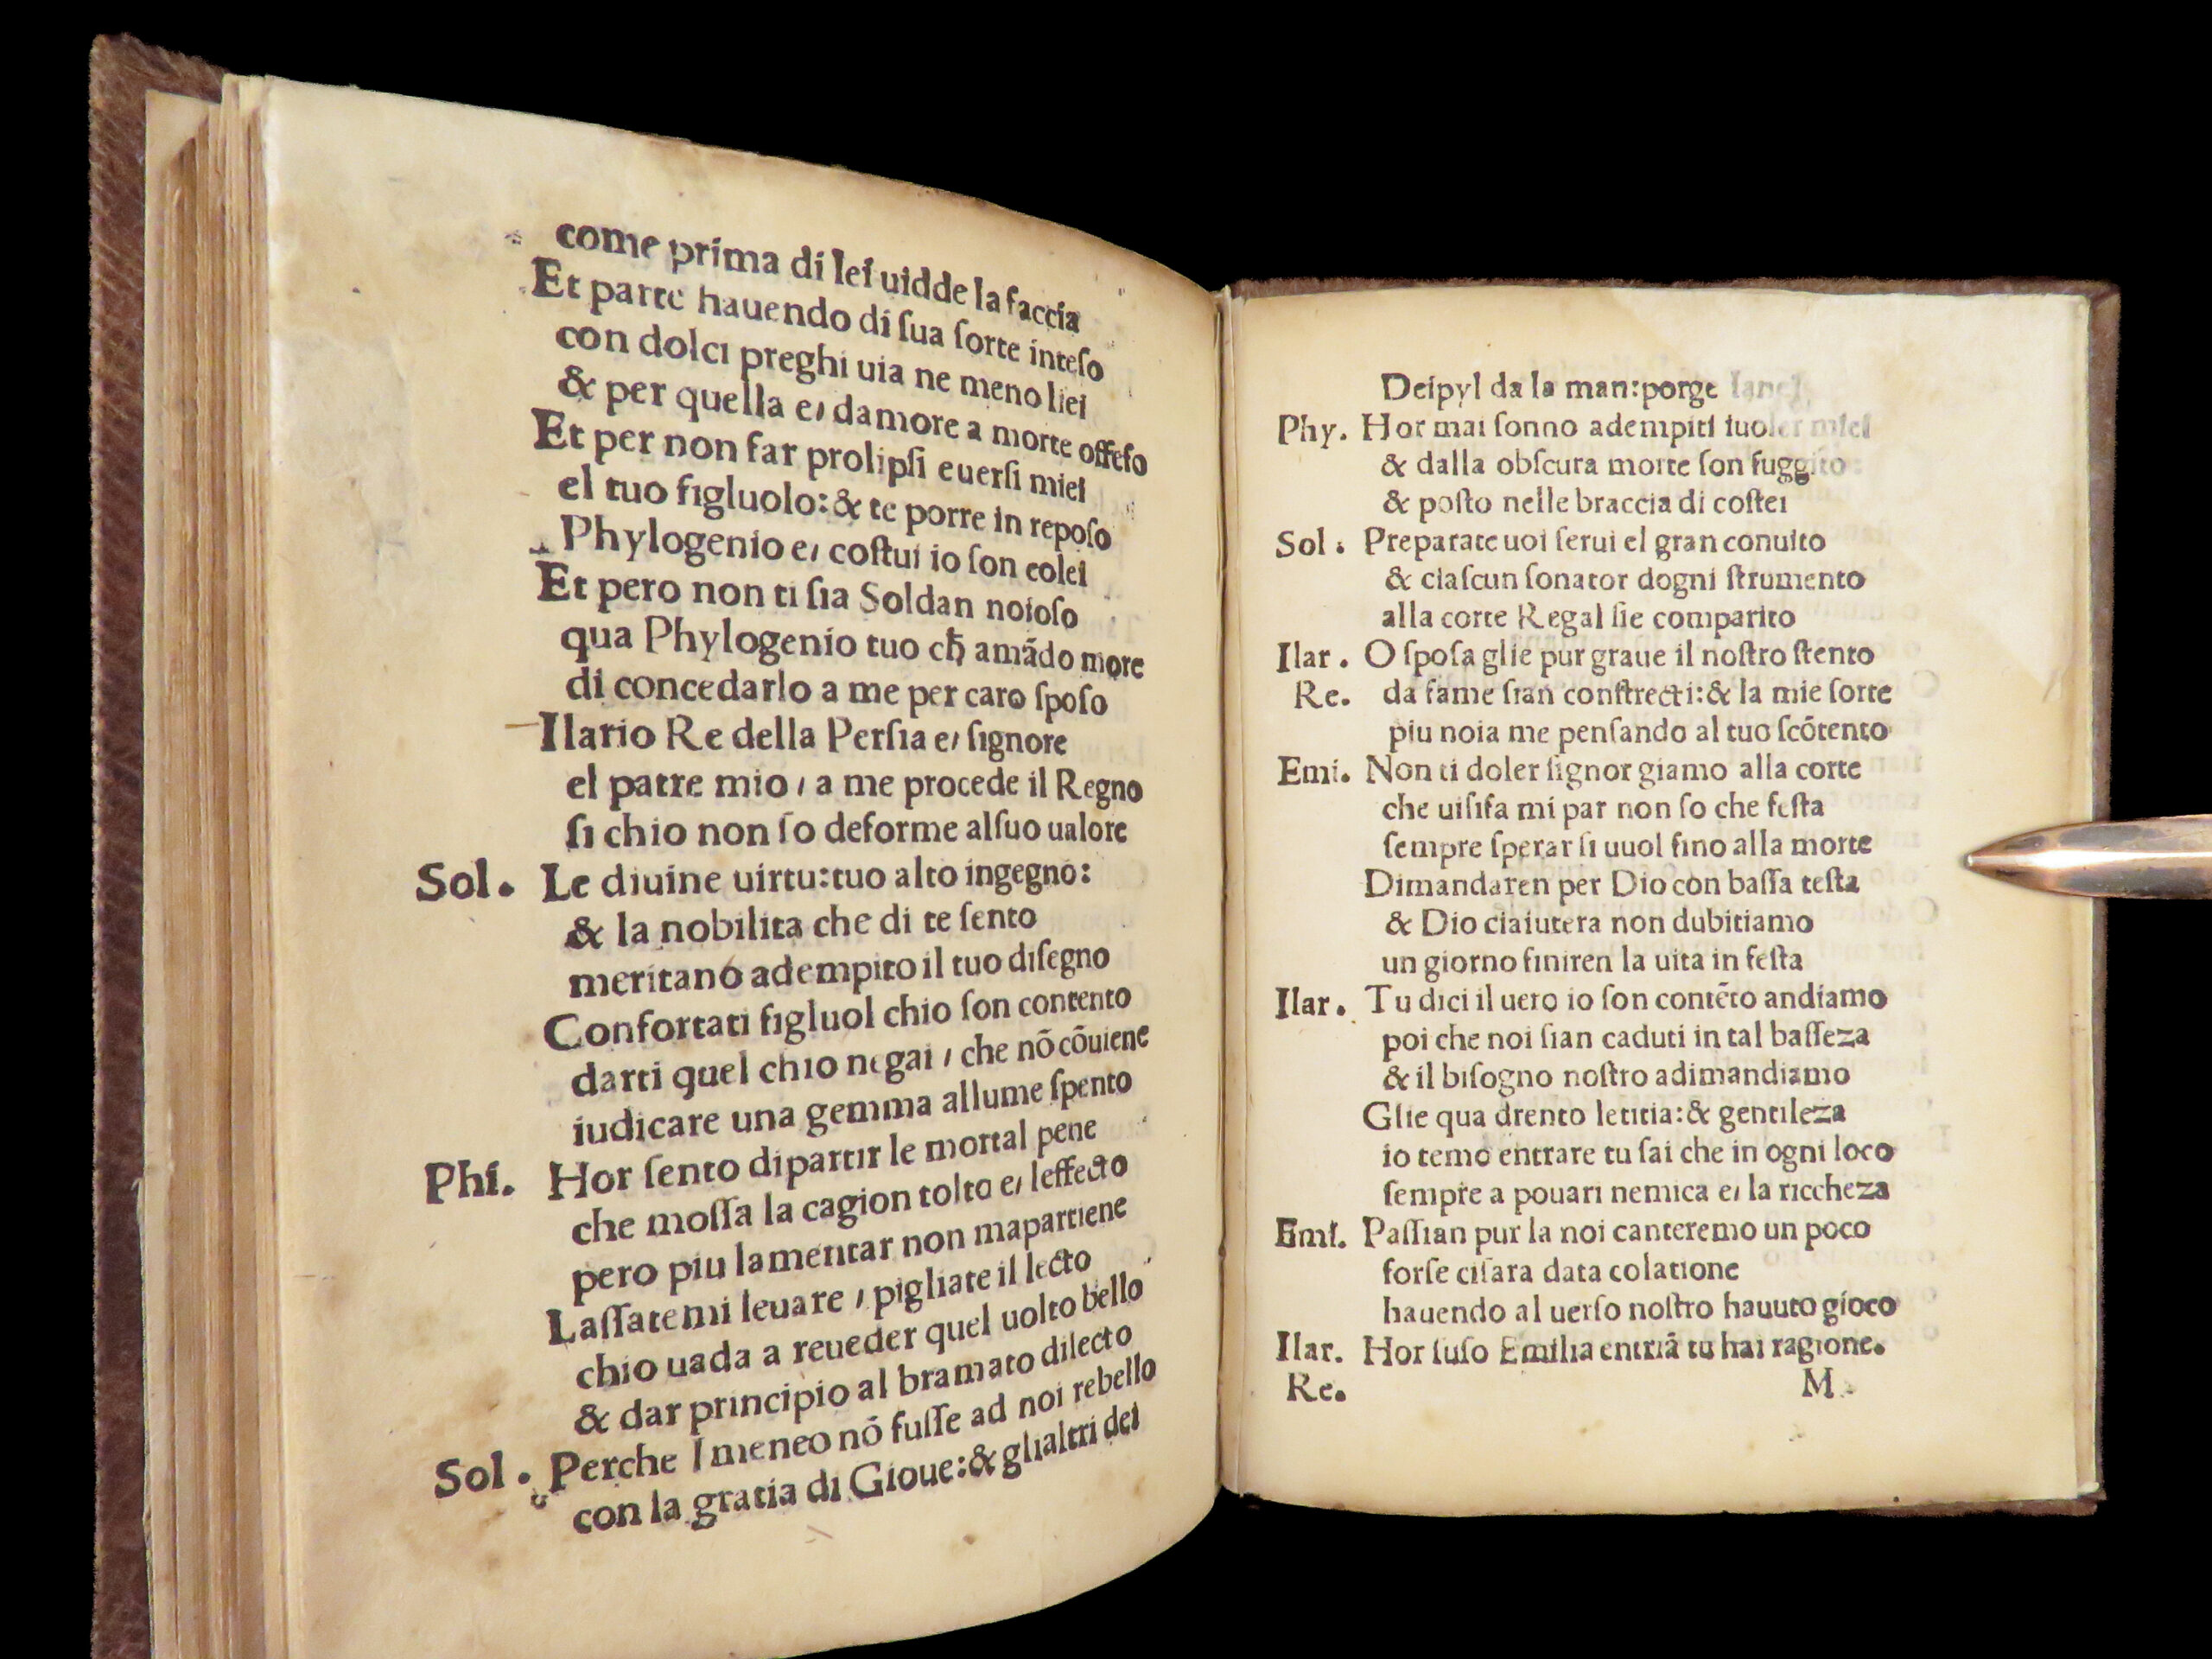 come prima di lei uidde la faccia
Et parte hauendo di ſua ſorte inteſo
con dolci preghi uia ne meno liei
& per quella e, damore a morte offeſo
Et per non far prolipſi euerſi miei
el tuo figluolo:& te porre in repoſo
Phylogenio e, coſtui io ſon colei
Et pero non ti ſia Soldan noioſo
qua Phylogenio tuo cħ amādo more
di concedarlo a me per caro ſpoſo
Ilario Re della Perſia e, ſignore
el patre mio, a me procede il Regno
ſi chio non ſo deforme alſuo ualore
Sol. Le diuine uirtu:tuo alto ingegno:
& la nobilita che di te ſento
meritano adempito il tuo diſegno
Confortati figluol chio ſon contento
darti quel chio negai, che nō cōuiene
iudicare una gemma allume ſpento
Phi. Hor ſento dipartir le mortal pene
che moſſa la cagion tolto e, leffecto
pero piu lamentar non mapartiene
Laſſatemi leuare, pigliate il lecto
chio uada a reueder quel uolto bello
& dar principio al bramato dilecto
Sol. Perche Imeneo nō fuſſe ad noi rebello
con la gratia di Gioue:& glialtri dei
Deipyl da la man:porge
Phy. Hor mai ſonno adempiti iuoler miei
& dalla obſcura morte ſon fuggito
& poſto nelle braccia di coſtei
Sol. Preparate uoi ſerui el gran conuito
& ciaſcun ſonator dogni ſtrumento
alla corte Regal ſie comparito
Ilar. O ſpoſa glie pur graue il noſtro ſtento
Re. da fame ſian conſtrecti:& la mie ſorte
piu noia me penſando al tuo ſcōtento
Emi. Non ti doler ſignor giamo alla corte
che uiſifa mi par non ſo che feſta
ſempre ſperar ſi uuol fino alla morte
Dimandaren per Dio con baſſa teſta
& Dio ciaiutera non dubitiamo
un giorno finiren la uita in feſta
Ilar. Tu dici il uero io ſon contēto andiamo
poi che noi ſian caduti in tal baſſeza
& il biſogno noſtro adimandiamo
Glie qua drento letitia:& gentileza
io temo entrare tu ſai che in ogni loco
ſempre a pouari nemica e, la riccheza
Emi. Paſſian pur la noi canteremo un poco
forſe ciſara data colatione
hauendo al uerſo noſtro hauuto gioco
Ilar. Hor ſuſo Emilia entriā tu hai ragione.
Re. M